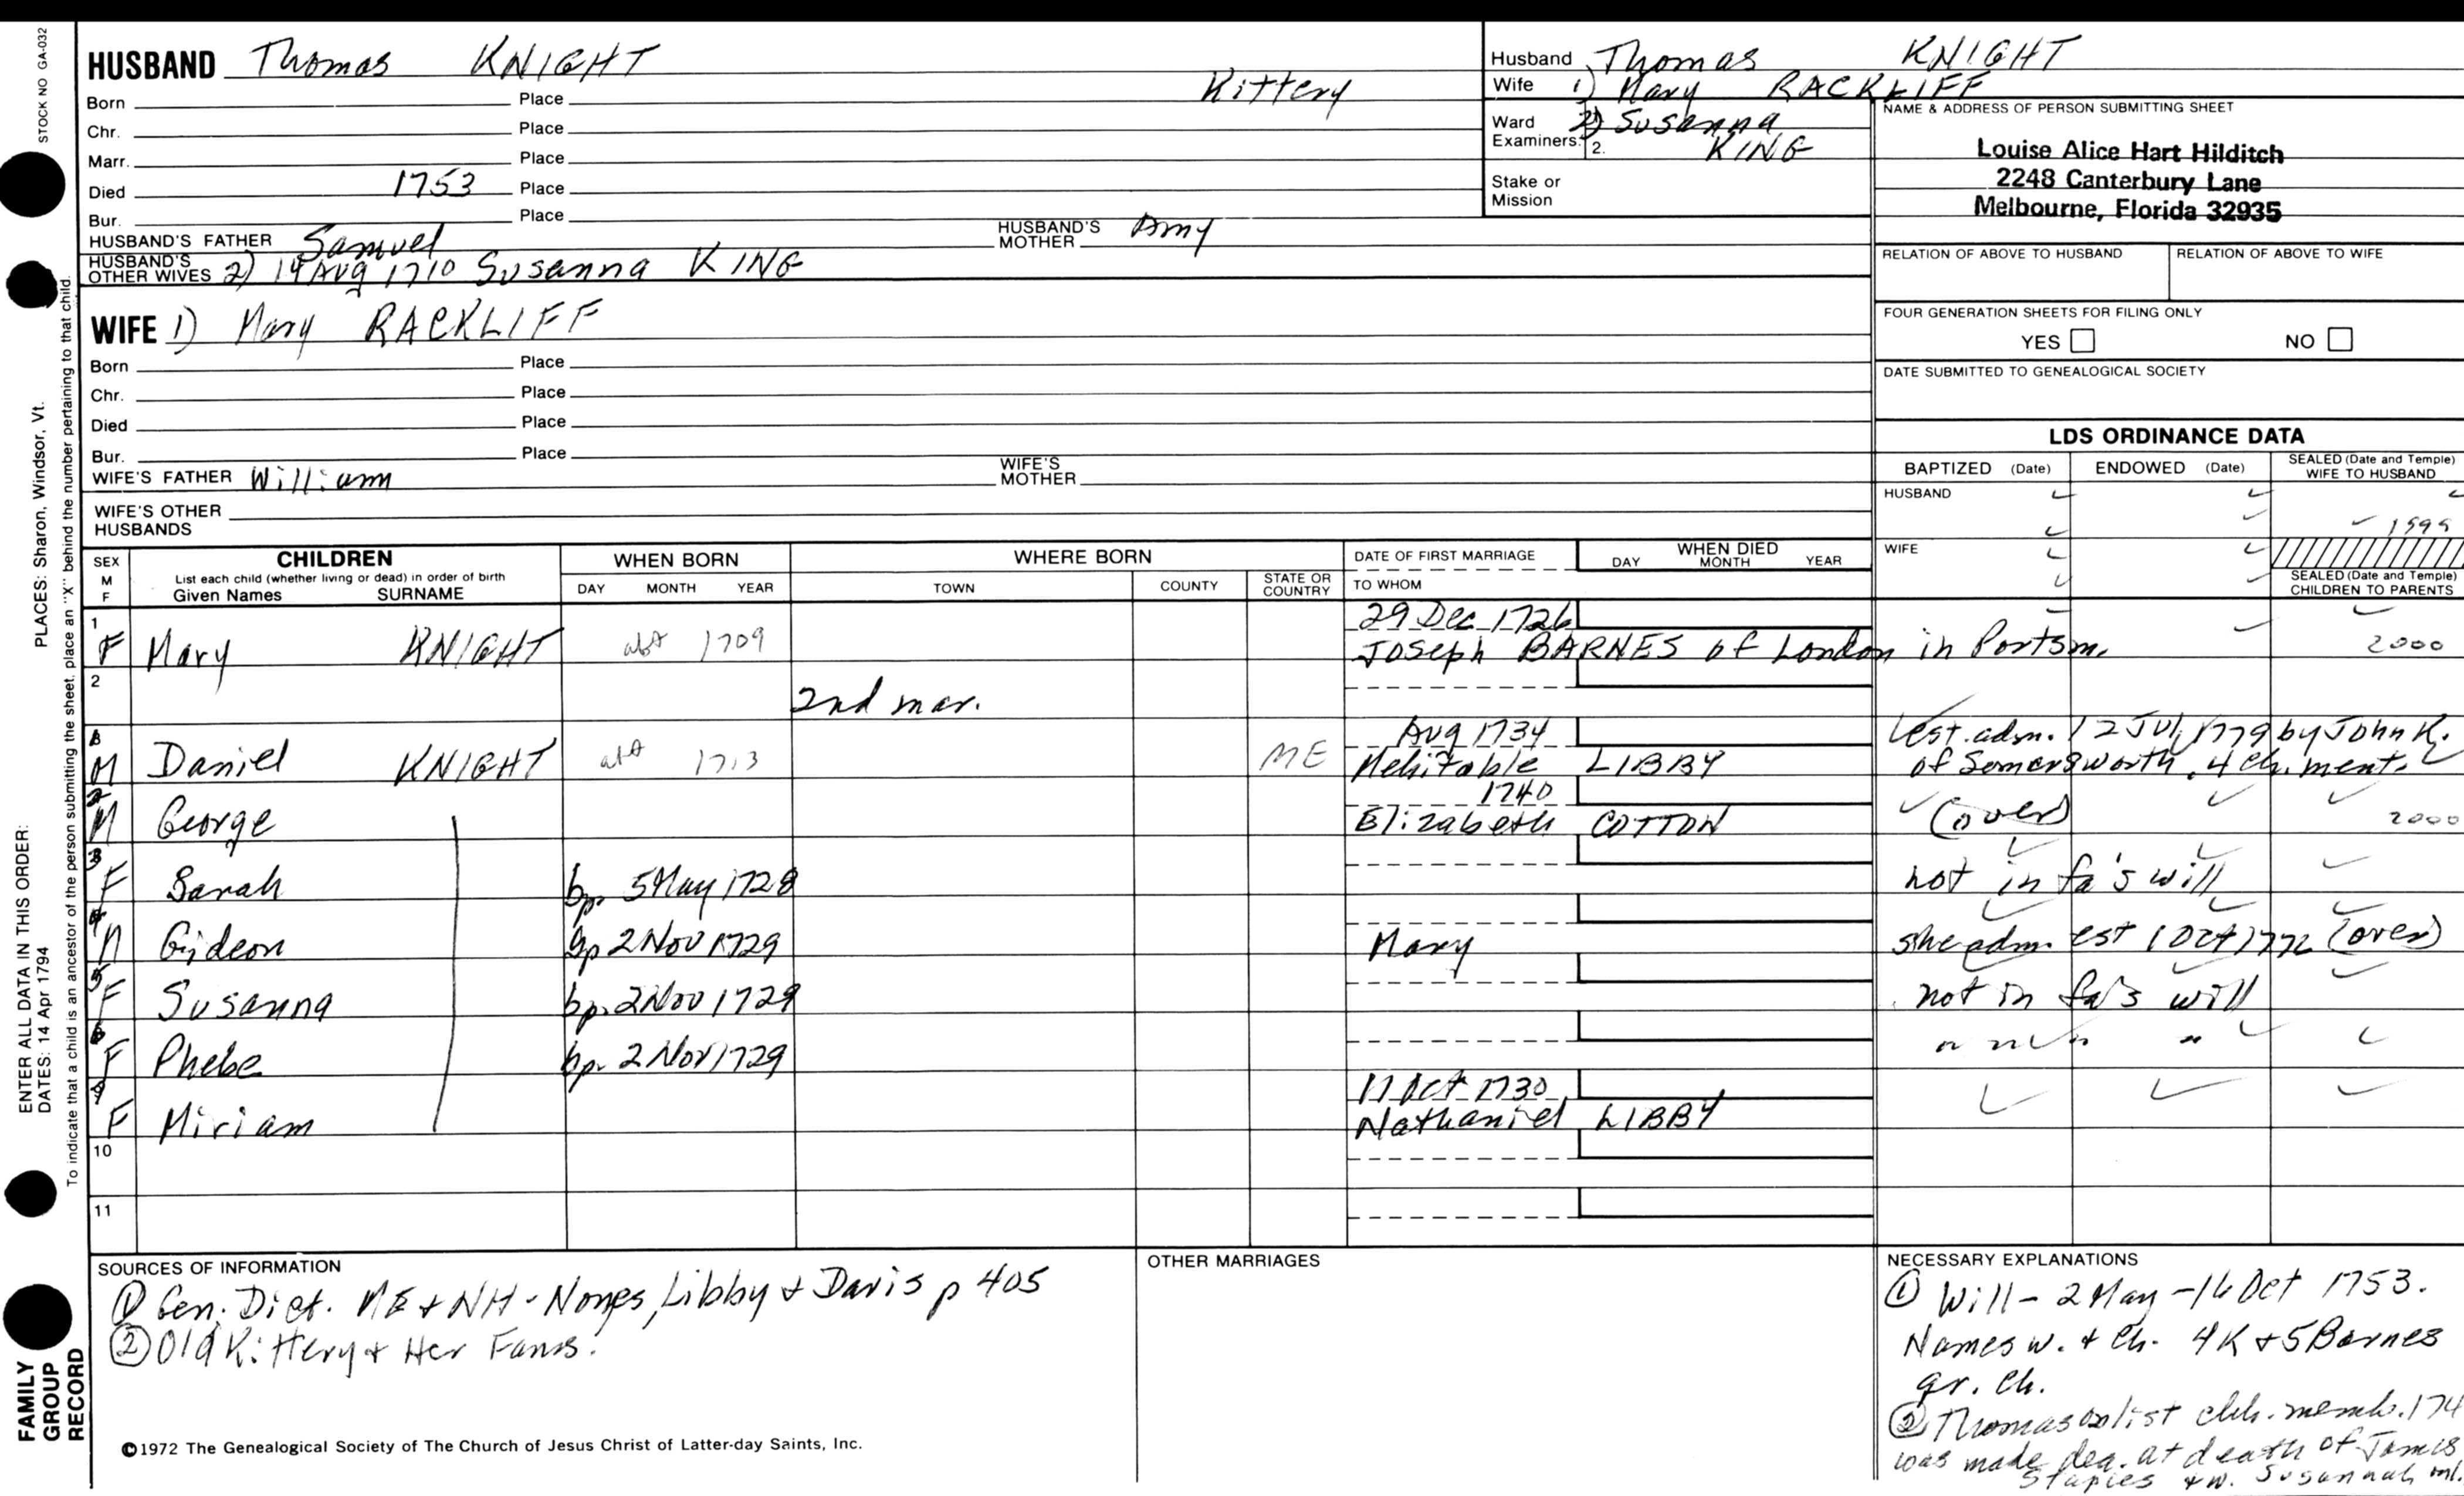 STOCK NO GA-032
PLACES: Sharon, Windsor, Vt.
ENTER ALL DATA IN THIS ORDER:
DATES: 14 Apr 1794
To indicate that a child is an ancestor of the person submitting the sheet, place an "X" behind the number pertaining to that child.
FAMILY
GROUP
RECORD
HUSBAND Thomas KNIGHT
Born Place Kittery
Chr. Place
Marr. Place
Died 1753 Place
Bur. Place
HUSBAND'S FATHER Samuel HUSBAND'S MOTHER Amy
HUSBAND'S OTHER WIVES 2) 14 Aug 1710 Susanna KING
Husband Thomas KNIGHT
Wife 1) Mary RACKLIFF
Ward 2) Susanna
Examiners: 2. KING
Stake or
Mission
NAME & ADDRESS OF PERSON SUBMITTING SHEET
Louise Alice Hart Hilditch
2248 Canterbury Lane
Melbourne, Florida 32935
RELATION OF ABOVE TO HUSBAND RELATION OF ABOVE TO WIFE
FOUR GENERATION SHEETS FOR FILING ONLY
YES NO
DATE SUBMITTED TO GENEALOGICAL SOCIETY
WIFE 1) Mary RACKLIFF
Born Place
Chr. Place
Died Place
Bur. Place
WIFE'S FATHER William WIFE'S MOTHER
WIFE'S OTHER
HUSBANDS
LDS ORDINANCE DATA
BAPTIZED (Date) ENDOWED (Date) SEALED (Date and Temple) WIFE TO HUSBAND
HUSBAND
WIFE
SEALED (Date and Temple)
CHILDREN TO PARENTS
SEX M F CHILDREN WHEN BORN WHERE BORN DATE OF FIRST MARRIAGE WHEN DIED
List each child (whether living or dead) in order of birth
Given Names SURNAME DAY MONTH YEAR TOWN COUNTY STATE OR COUNTRY TO WHOM DAY MONTH YEAR
1 29 Dec 1726
F Mary KNIGHT abt 1709 Joseph BARNES of London in Portsm. 2000
2 2nd mar.
Aug 1734 12 Jul 1779 by John K.
M Daniel KNIGHT abt 1713 ME Mehitable LIBBY of Somersworth. 4 ch. ment.
1740
M George Elizabeth COTTON (over) 2000
3 F Sarah bp. 5 May 1728 not in fa's will
4 M Gideon bp 2 Nov 1729 Mary she adm. est 1 Oct 1772 (over)
5 F Susanna bp. 2 Nov 1729 not in fa's will
6 F Phebe bp. 2 Nov 1729 " " " "
17 Oct 1730
F Miriam Nathaniel LIBBY
10
11
SOURCES OF INFORMATION
① Gen. Dict. ME + NH - Noyes, Libby + Davis p 405
② Old Kittery + Her Fams.
©1972 The Genealogical Society of The Church of Jesus Christ of Latter-day Saints, Inc.
OTHER MARRIAGES
NECESSARY EXPLANATIONS
① Will - 2 May - 16 Oct 1753.
Names w. + ch. 4 K + 5 Barnes
gr. ch.
② Thomas on list chh. memb. 174
was made dea. at death of James
Staples + w. Susannah